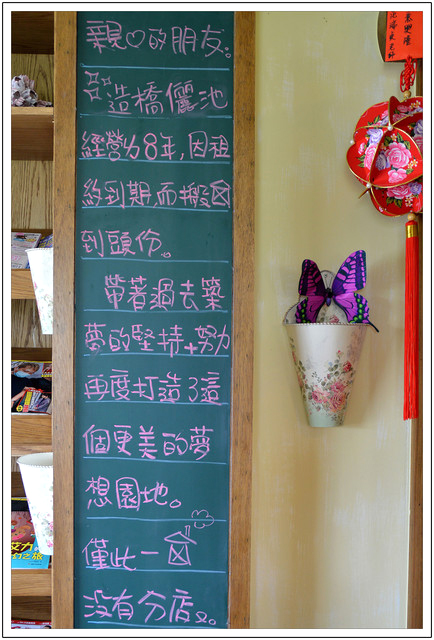 親♡的朋友。
造橋儷池
經營了8年,因租
約到期而搬
到頭份。
帶著過去築
夢的堅持+努力
再度打造了這
個更美的夢
想園地。
僅此一
沒有分店。
艾力
幻之旅